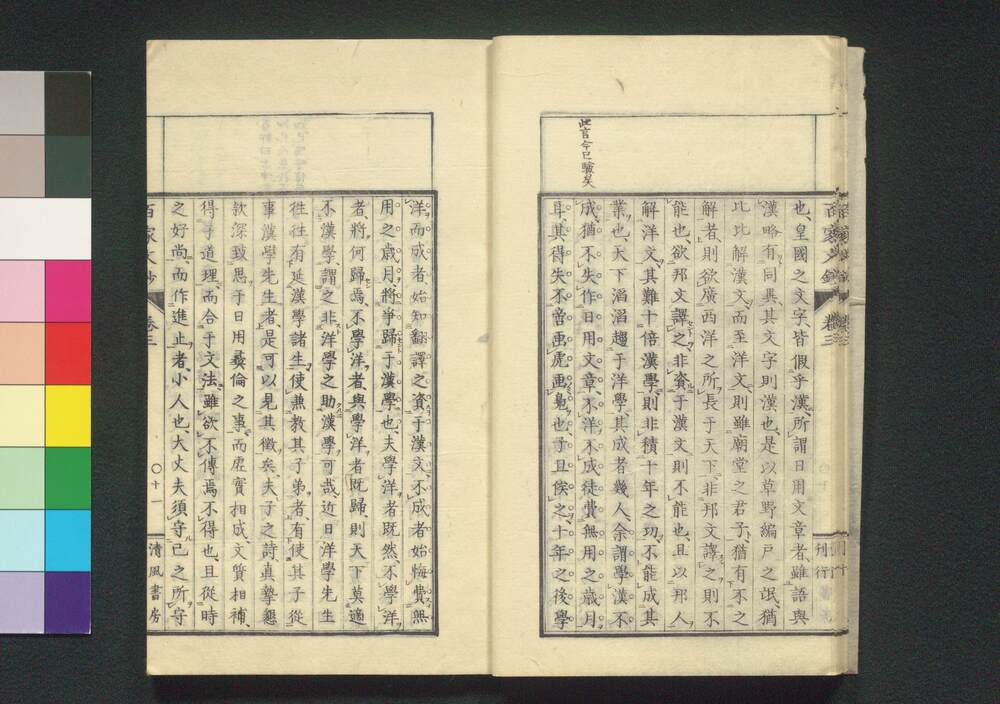 此言今已驗矣
也、皇國之文字、皆假乎漢、所謂日用文章者、雖語與
漢略有同異、其文字則漢也、是以草野編戶之氓、猶
比比解漢文、而至洋文、則雖廟堂之君子、猶有不之
解者、則欲廣西洋之所長于天下、非邦文譯之則不
能也、欲邦文譯之、非資于漢文則不能也、且以邦人
解洋文、其難十倍漢學、則非積十年之功、不能成其
業也、天下滔滔趨于洋學、其成者幾人、余謂學漢不
成、猶不失作日用文章、不洋不成、徒費無用之歲月
耳、其得失不啻畫虎畫鳧也、予且俟之十年之後、學
百家文鈔
卷三
刊行
洋而成者、始知翻譯之資于漢文、不成者、始悔費無
用之歲月、將爭歸于漢學也、夫學洋者既然、不學洋
者、將何歸焉、不學洋者、與學洋者既歸、則天下莫適
不漢學、謂之非洋學之助漢學可哉、近日洋學先生
徃徃有延漢學諸生、使兼教其子弟者、有使其子從
事漢學先生者、是可以見其徵矣、夫子之詩、真摯懇
款、深致思于日用彝倫之事、而虛實相成、文質相補、
得乎道理、而合于文法、雖欲不傳焉不得也、且從時
之好尚、而作進止者、小人也、大丈夫須守己之所守
百家文鈔
卷三
〇十一
清風書房